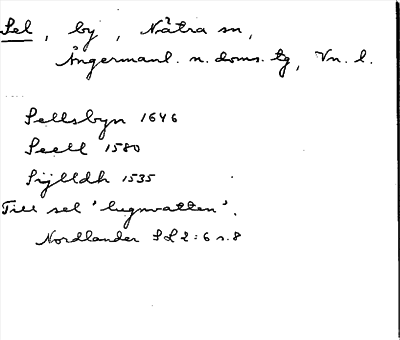 Sel, by, Nätra sn,
Ångermanl. n. doms. tg, Vn. l.
Sellsbyn 1646
Seell 1580
Sijlldh 1535
Till sel 'lugnvatten'.
Nordlander SL 2:6 s. 8